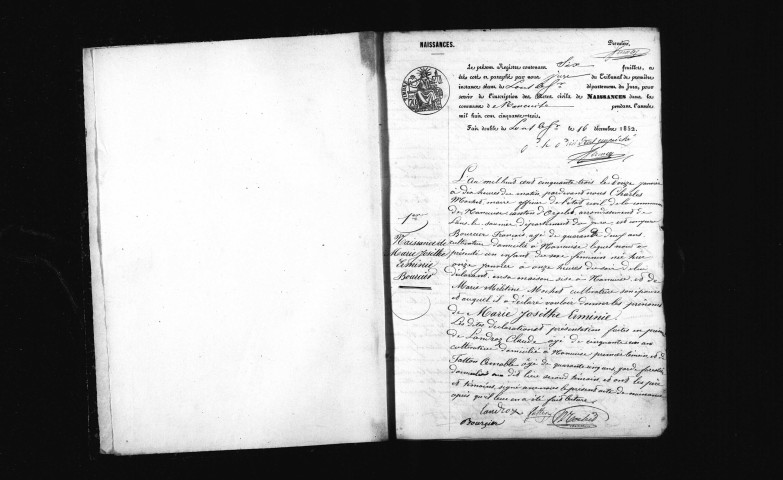 NAISSANCES.
Dernière,
Le présent Registre contenant Six feuillets, a
été coté et paraphé par nous juge du Tribunal de première
instance séant de Lons le Sr département du Jura, pour
servir de l'inscription des Actes civils de NAISSANCES dans la
commune de pendant l'année
mil huit cent cinquante-trois.
Fait double de Lons le Sr le 16 décembre 1852
L'an mil huit cent cinquante trois le douze janvier
à dix heures du matin pardevant nous Charles
Mochet, maire officier de l'état civil de la commune
de canton d'Orgelet, arrondissement de
Lons le saunier département du Jura, est comparu
Bourcier François, âgé de quarante neuf ans
cultivateur domicilié à lequel nous a
présenté un enfant du sexe féminin né hier
onze janvier à onze heures du soir de lui
déclarant, en sa maison sise à et de
Marie Mochet cultivatrice son épouse
et auquel il a déclaré vouloir donner les prénoms
de Marie Josèthe Eiminie.
Les dites déclaration et présentation faites en présence
de Landroz Claude âgé de cinquante ans
cultivateur domicilié à premier témoin, et de
âgé de quarante ans, garde forestier
domicilié au dit lieu second témoin et ont les père
et témoins, signé avec nous le présent acte de naissance
après qu'il leur en a été fait lecture.
Landroz Mochet
Bourcier
1er
Naissance de
Marie Josèthe
Eiminie
Bourcier